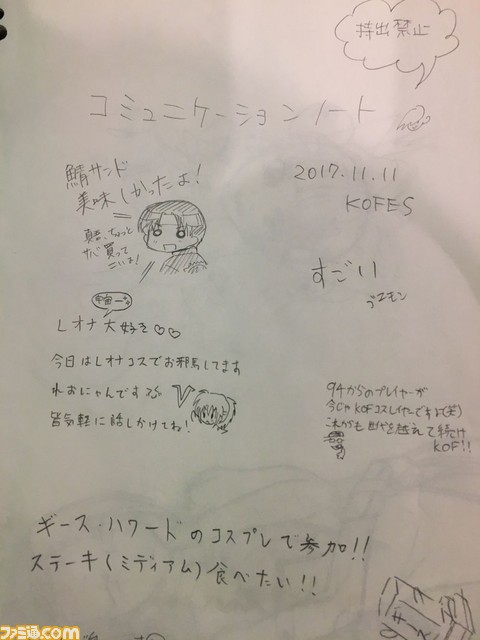 持出禁止
コミュニケーションノート
鯖サンド
美味しかったよ!
真吾、ちょっと
サバ買って
こいよ!
2017.11.11
KOFES
すごい
ゴエモン
宇宙一
レオナ大好き♡♡
今日はレオナコスでお邪魔してます
れおにゃんです
皆気軽に話しかけてね!
94からのプレイヤーが
今じゃKOFコスレイヤーですよ(笑)
これからも世代を越えて続け
KOF!!
ギース・ハワードのコスプレで参加!!
ステーキ(ミディアム)食べたい!!
ファミ通.com